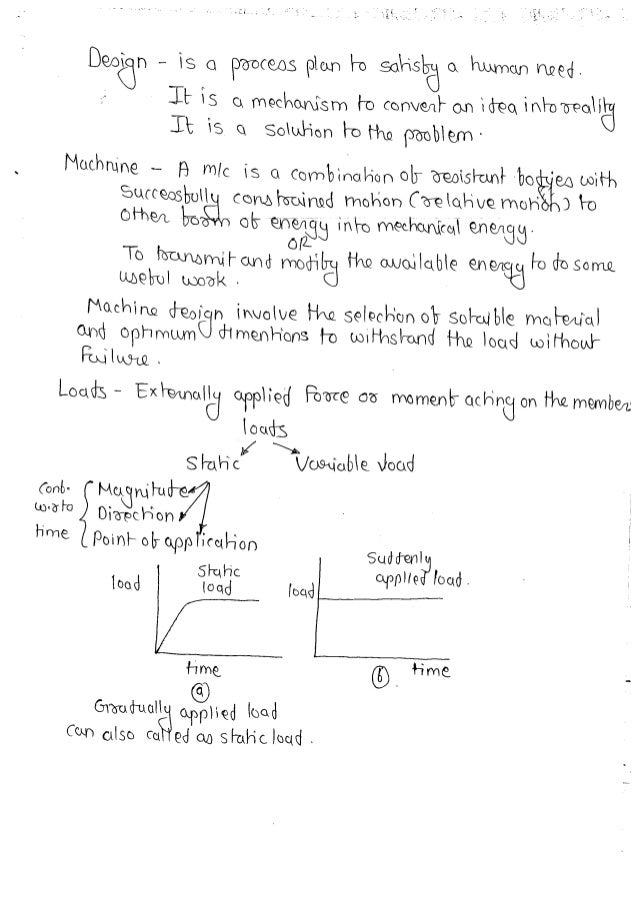 Design - is a process plan to satisfy a human need.
It is a mechanism to convert an idea into reality
It is a solution to the problem.
Machnine - A m/c is a combination of resistant bodyies with
Successfully constrained motion (relative motion) to
other form of energy into mechanical energy.
OR
To transmit and modify the available energy to do some
useful work.
Machine design involve the selection of sutaible material
and optimum dimentions to withstand the load without
Failure.
Loads - Externally applied Force or moment acting on the member
loads
Static Variable load
Const. w.r to time { Magnitude
Direction
Point of application
load Static load time
(a)
load Suddenly applied load. time
(b).
Gradually applied load
Can also called as static load.